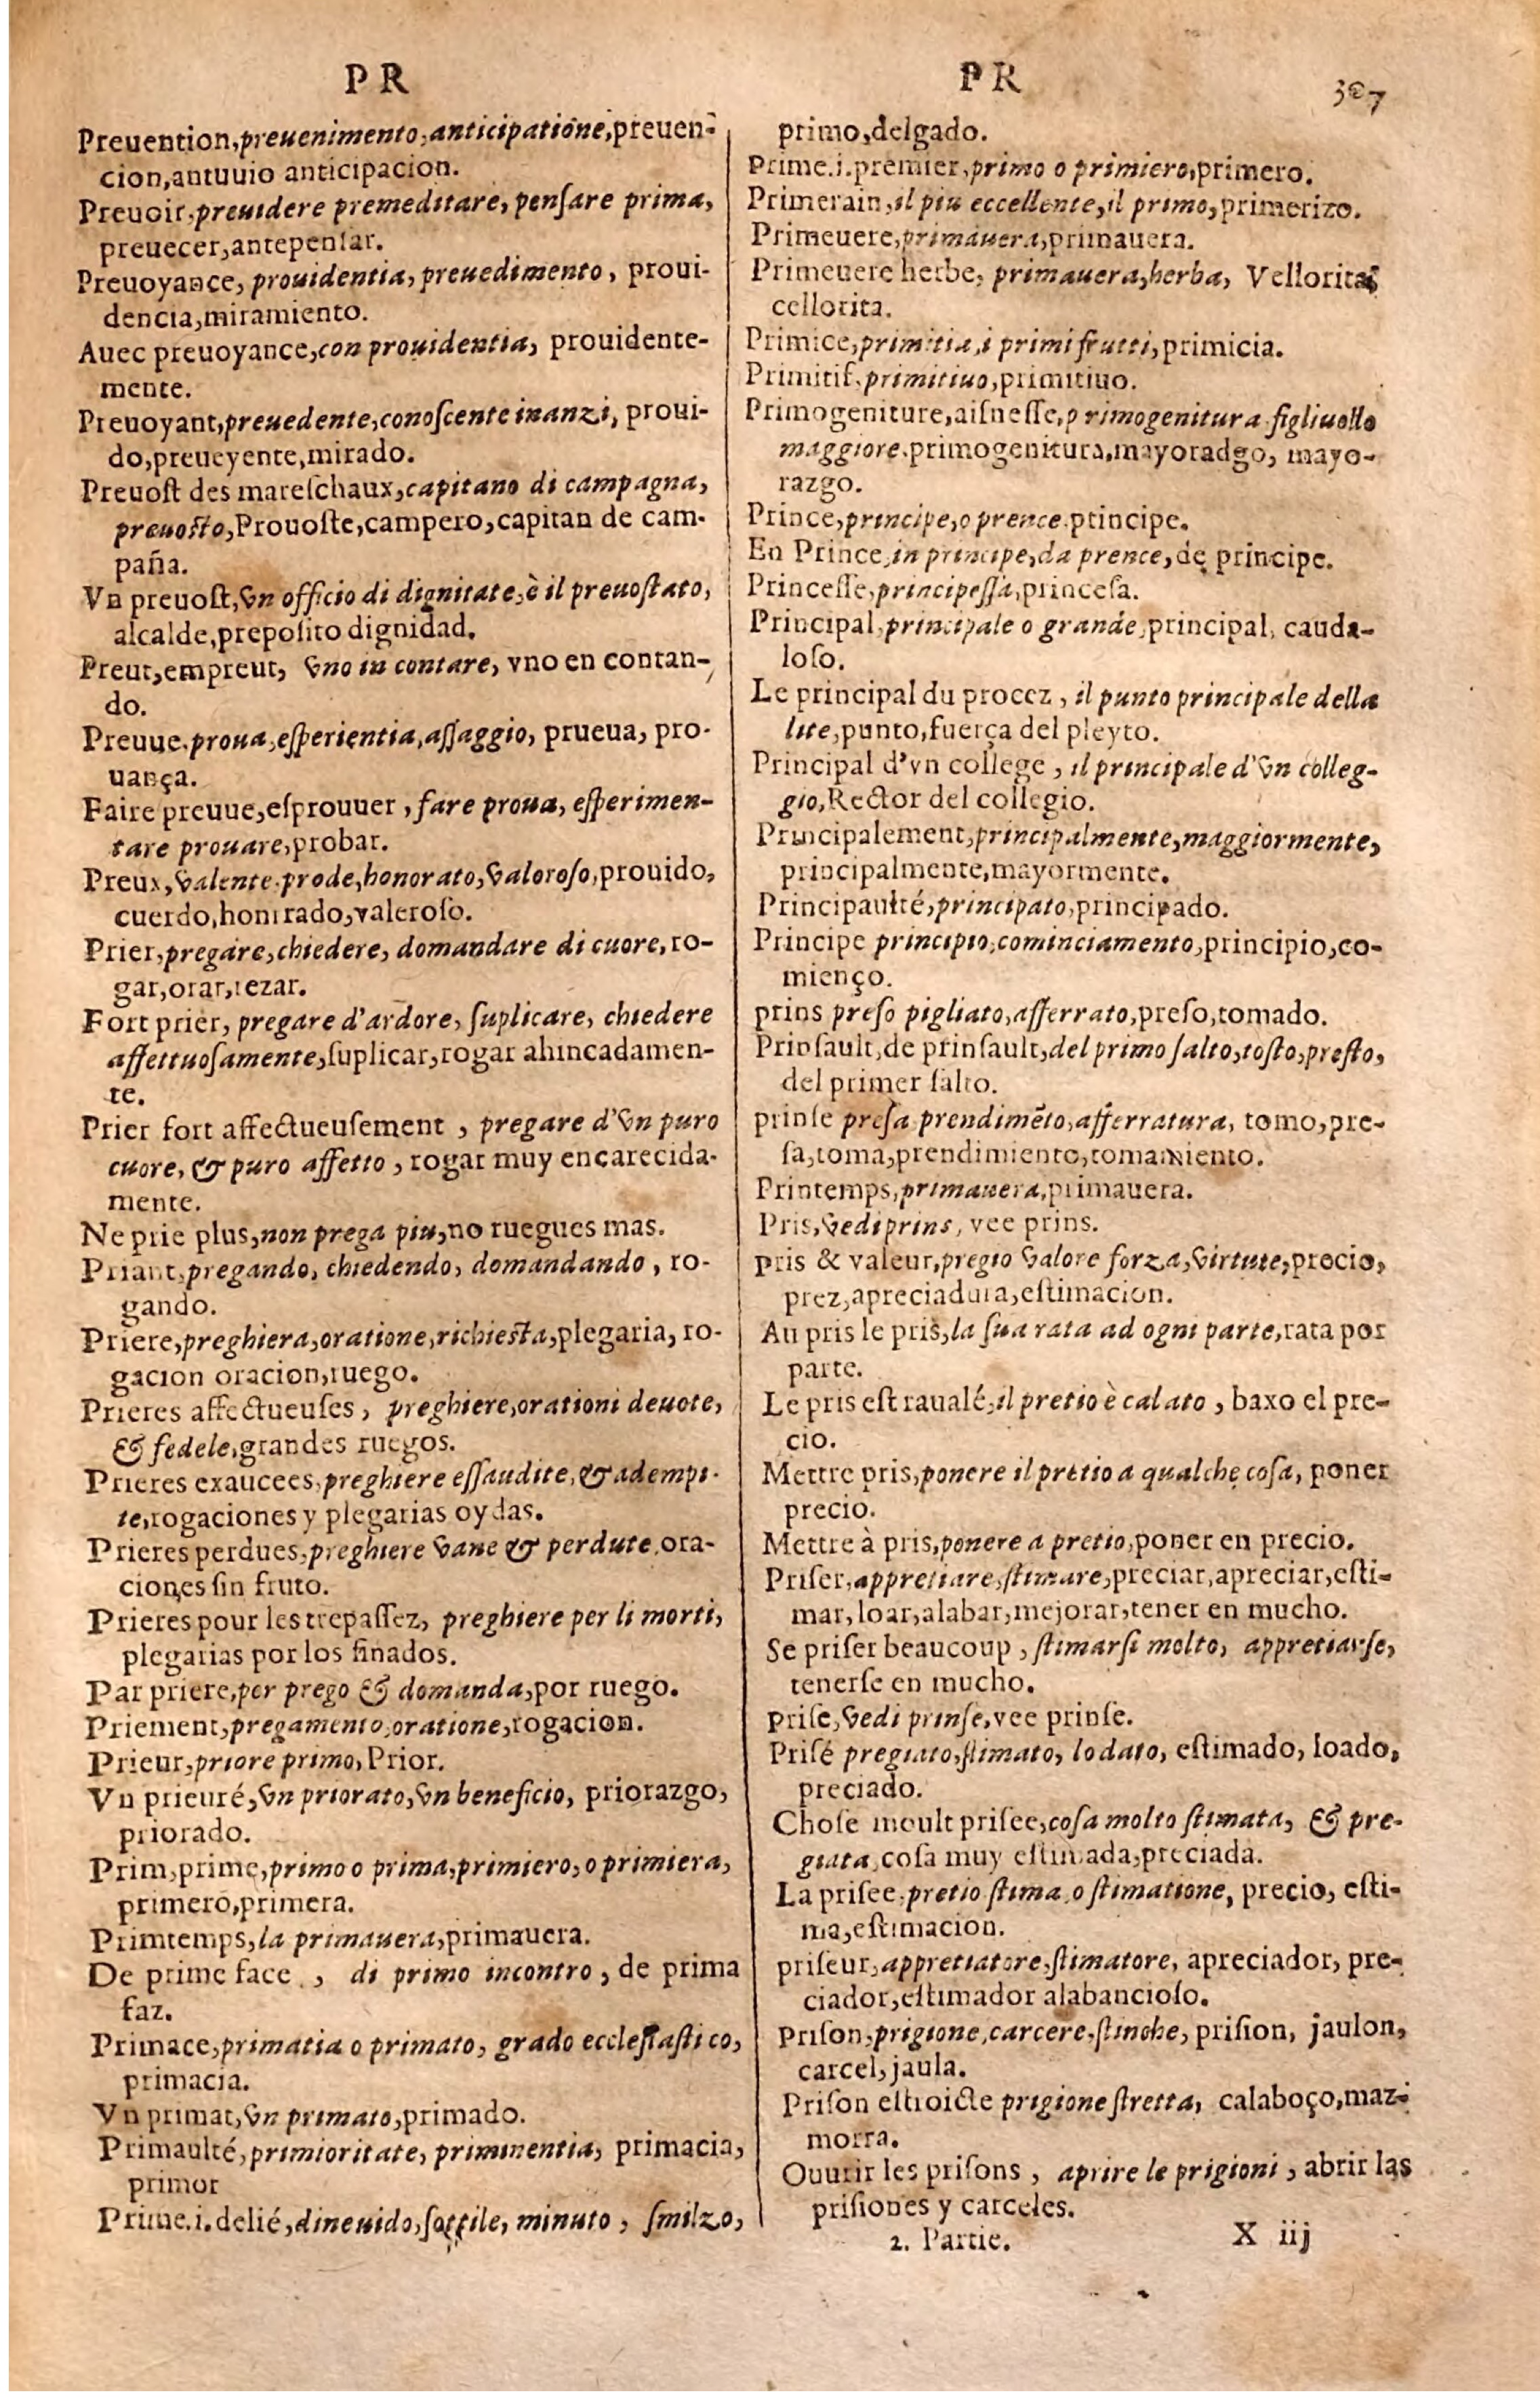 PR
Preuention,preuenimento,anticipatione,preuen-
cion,antuuio anticipacion.
Preuoir,preuidere premeditare, penſare prima,
preuecer,antepenſar.
Preuoyance, prouidentia, preuedimento, proui-
dencia,miramiento.
Auec preuoyance,con prouidentia, prouidente-
mente.
Preuoyant,preuedente,conoſcente inanzi, proui-
do,preueyente,mirado.
Preuoſt des mareſchaux,capitano di campagna,
preuoſto,Prouoſte,campero,capitan de cam-
paña.
Vn preuoſt,vn officio di dignitate,è il preuoſtato,
alcalde,prepoſito dignidad.
Preut,empreut, vno in contare, vno en contan-
do.
Preuue,proua,eſperientia,aſſaggio, prueua, pro-
uança.
Faire preuue,eſprouuer, fare proua, eſperimen-
tare prouare,probar.
Preux,valente,prode,honorato,valoroſo,prouido,
cuerdo,honrrado,valeroſo.
Prier,pregare,chiedere, domandare di cuore, ro-
gar,orar,rezar.
Fort prier, pregare d'ardore, ſuplicare, chiedere
affettuoſamente,ſuplicar,rogar ahincadamen-
te.
Prier fort affectueuſement, pregare d'vn puro
cuore, & puro affetto, rogar muy encarecida-
mente.
Ne prie plus,non prega piu,no ruegues mas.
Priant,pregando, chiedendo, domandando, ro-
gando.
Priere,preghiera,oratione,richieſta,plegaria, ro-
gacion oracion,ruego.
Prieres affectueuſes, preghiere,orationi deuote,
& fedele,grandes ruegos.
Prieres exaucees,preghiere eſſaudite, & adempi-
te,rogaciones y plegarias oydas.
Prieres perdues,preghiere vane & perdute,ora-
ciones ſin fruto.
Prieres pour les trepaſſez, preghiere per li morti,
plegarias por los finados.
Par priere,per prego & domanda,por ruego.
Priement,pregamento,oratione,rogacion.
Prieur,priore primo,Prior.
Vn prieuré,vn priorato,vn beneficio, priorazgo,
priorado.
Prim,prime,primo o prima,primiero, o primiera,
primero,primera.
Primtemps,la primauera,primauera.
De prime face, di primo incontro, de prima
faz.
Primace,primatia o primato, grado eccleſiaſtico,
primacia.
Vn primat,vn primato,primado.
Primaulté,primioritate, priminentia, primacia,
primor
Prime.i.delié,dineuido,ſottile, minuto, ſmilzo,
PR
307
primo,delgado.
Prime.i.premier,primo o primiero,primero.
Primerain,il piu eccellente,il primo,primerizo.
Primeuere,primauera,primauera.
Primeuere herbe, primauera,herba, Vellorita,
cellorita.
Primice,primitia,i primi frutti,primicia.
Primitif,primitiuo,primitiuo.
Primogeniture,aiſneſſe,primogenitura figliuollo
maggiore,primogenitura,mayoradgo, mayo-
razgo.
Prince,principe,o prence,principe.
En Prince,in principe,da prence,de principe.
Princeſſe,principeſſa,princeſa.
Principal,principale o grande,principal, cauda-
loſo.
Le principal du procez, il punto principale della
lite,punto,fuerça del pleyto.
Principal d'vn college, il principale d'vn colleg-
gio,Rector del collegio.
Principalement,principalmente,maggiormente,
principalmente,mayormente.
Principaulté,principato,principado.
Principe principio,cominciamento,principio,co-
mienço.
prins preſo pigliato,afferrato,preſo,tomado.
Prinſault,de prinſault,del primo ſalto,toſto,preſto,
del primer ſalto.
prinſe preſa prendimẽto,afferratura, tomo,pre-
ſa,toma,prendimiento,tomamiento.
Printemps,primauera,primauera.
Pris,vedi prins, vee prins.
pris & valeur,pregio valore forza,virtute,precio,
prez,apreciadura,eſtimacion.
Au pris le pris,la ſua rata ad ogni parte,rata por
parte.
Le pris eſt raualé,il pretio è calato, baxo el pre-
cio.
Mettre pris,ponere il pretio a qualche coſa, poner
precio.
Mettre à pris,ponere a pretio,poner en precio.
Priſer,appretiare,ſtimare,preciar,apreciar,eſti-
mar,loar,alabar,mejorar,tener en mucho.
Se priſer beaucoup, ſtimarſi molto, appretiarſe,
tenerſe en mucho.
priſe,vedi prinſe,vee prinſe.
Priſé pregiato,ſtimato, lodato, eſtimado, loado,
preciado.
Choſe moult priſee,coſa molto ſtimata, & pre-
giata,coſa muy eſtimada,preciada.
La priſee,pretio ſtima o ſtimatione, precio, eſti-
ma,eſtimacion.
priſeur,appretiatore,ſtimatore, apreciador, pre-
ciador,eſtimador alabancioſo.
Priſon,prigione,carcere,ſtinche, priſion, jaulon,
carcel,jaula.
Priſon eſtroicte prigione ſtretta, calaboço,maz-
morra.
Ouurir les priſons, aprire le prigioni, abrir las
priſiones y carceles.
2. Partie. X iij